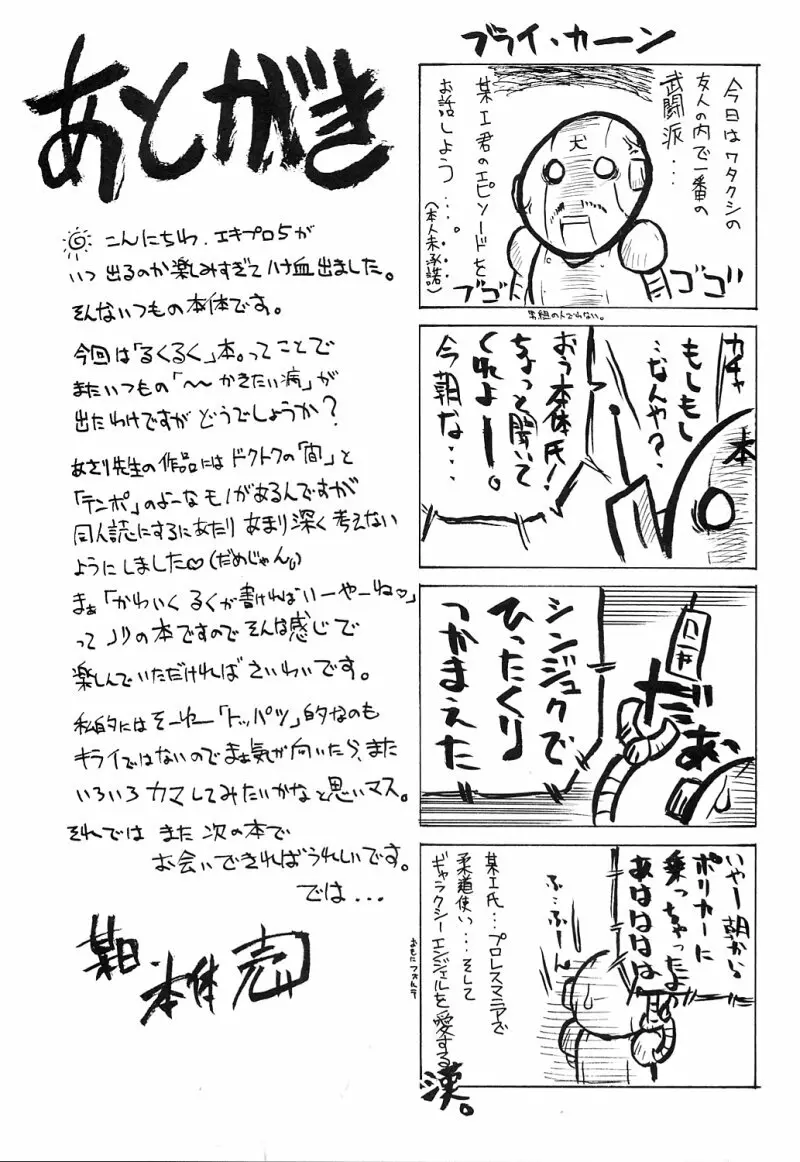 ブライ・カーン
今日はワタクシの
友人の内で一番の
武闘派・・・
某エ君のエピソードを
お話しよう・・・。
(本人未承諾)
ゴゴ
ブゴ
犬
男組の人でわない。
カチャ
もしもし
・・なんや?
本
おう本体氏!
ちょっと聞いて
くれよー。
今朝な・・・
シンジュクで
ひったくり
つかまえた
だぁぁ
いやー朝から
ポリカーに
乗っちゃったよ
あはははは
ふ・・ふーん
某エ氏・・・プロレスマニアで
柔道使い・・・そして
ギャラクシーエンジェルを愛する
漢。
おもにフォルテ
あとがき
こんにちわ、エキプロ5が
いつ出るのか楽しみすぎてハナ血出ました。
そんないつもの本体です。
今回は「るくるく」本。ってことで
またいつもの「〜〜かきたい病」が
出たわけですがどうでしょうか?
あさり先生の作品にはドクトクの「間」と
「テンポ」のよーなモノがあるんですが
同人誌にするにあたりあまり深く考えない
ようにしました♡(だめじゃん)
まぁ「かわいくるくが書ければいーやーね♡」
ってノリの本ですのでそんな感じで
楽しんでいただければさいわいです。
私的にはそーゆー「トッパツ」的なのも
キライではないのでまた気が向いたら、また
いろいろカマしてみたいかなと思いマス。
それではまた次の本で
お会いできればうれしいです。
では・・・
本体 売